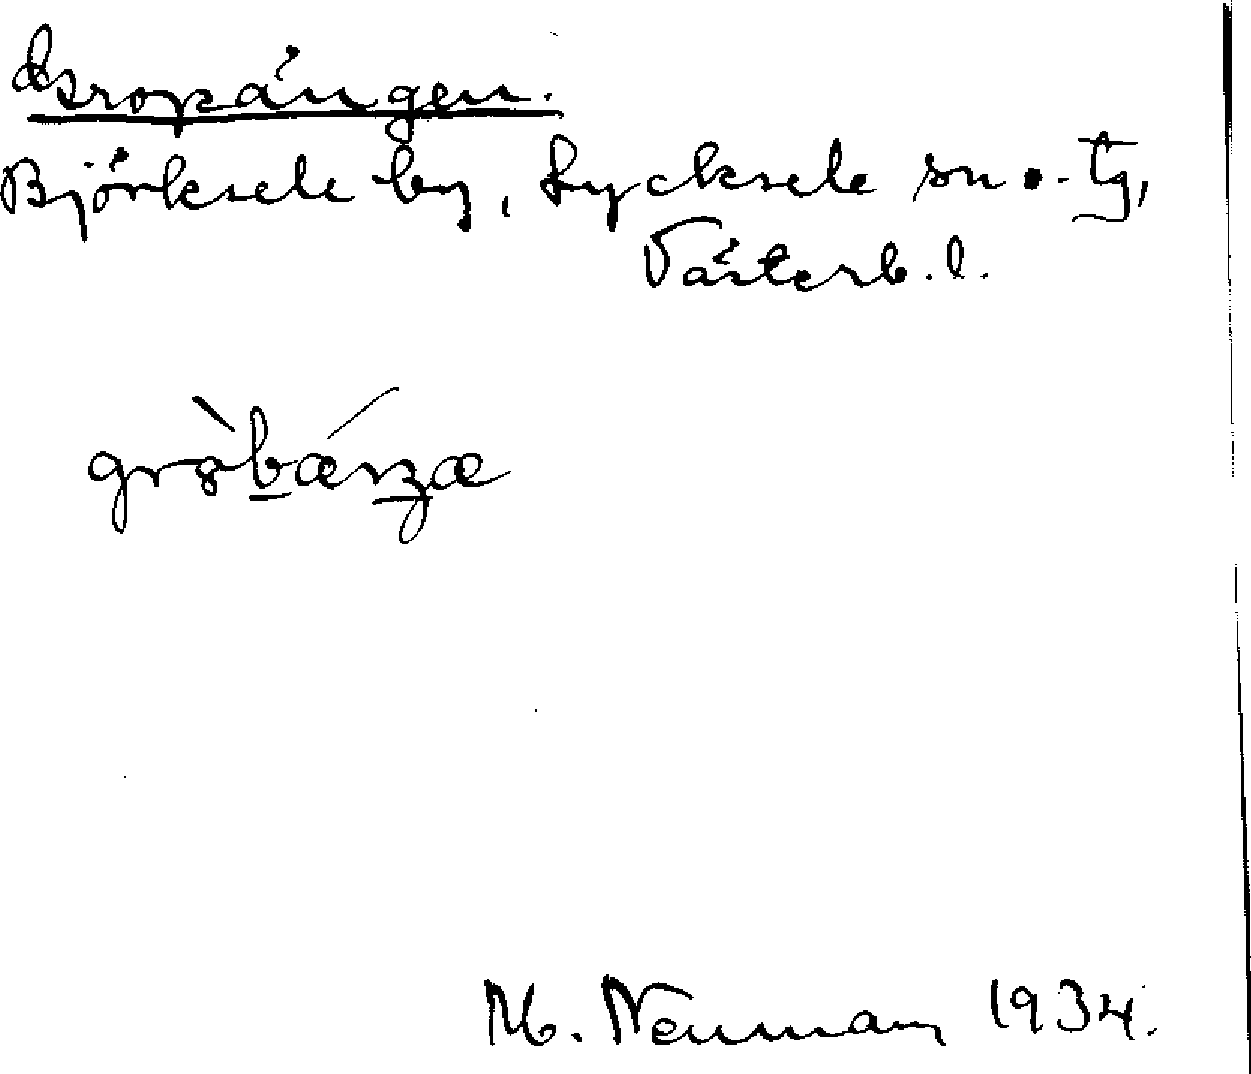 Gropängen.
Björksele by, Lycksele sn o. tg,
Västerb. l.
M. Neuman 1934.